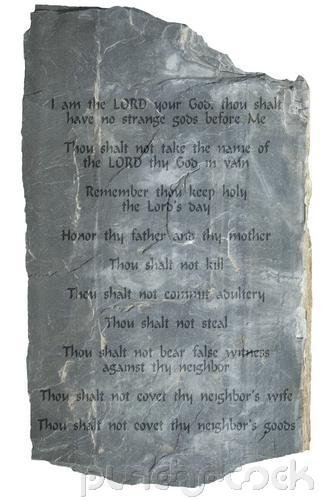 I am the LORD your God, thou shalt
have no strange gods before Me
Thou shalt not take the name of
the LORD thy God in vain
Remember thou keep holy
the Lord's day
Honor thy father and thy mother
Thou shalt not kill
Thou shalt not commit adultery
Thou shalt not steal
Thou shalt not bear false witness
against thy neighbor
Thou shalt not covet thy neighbor's wife
Thou shalt not covet thy neighbor's goods
punchstock